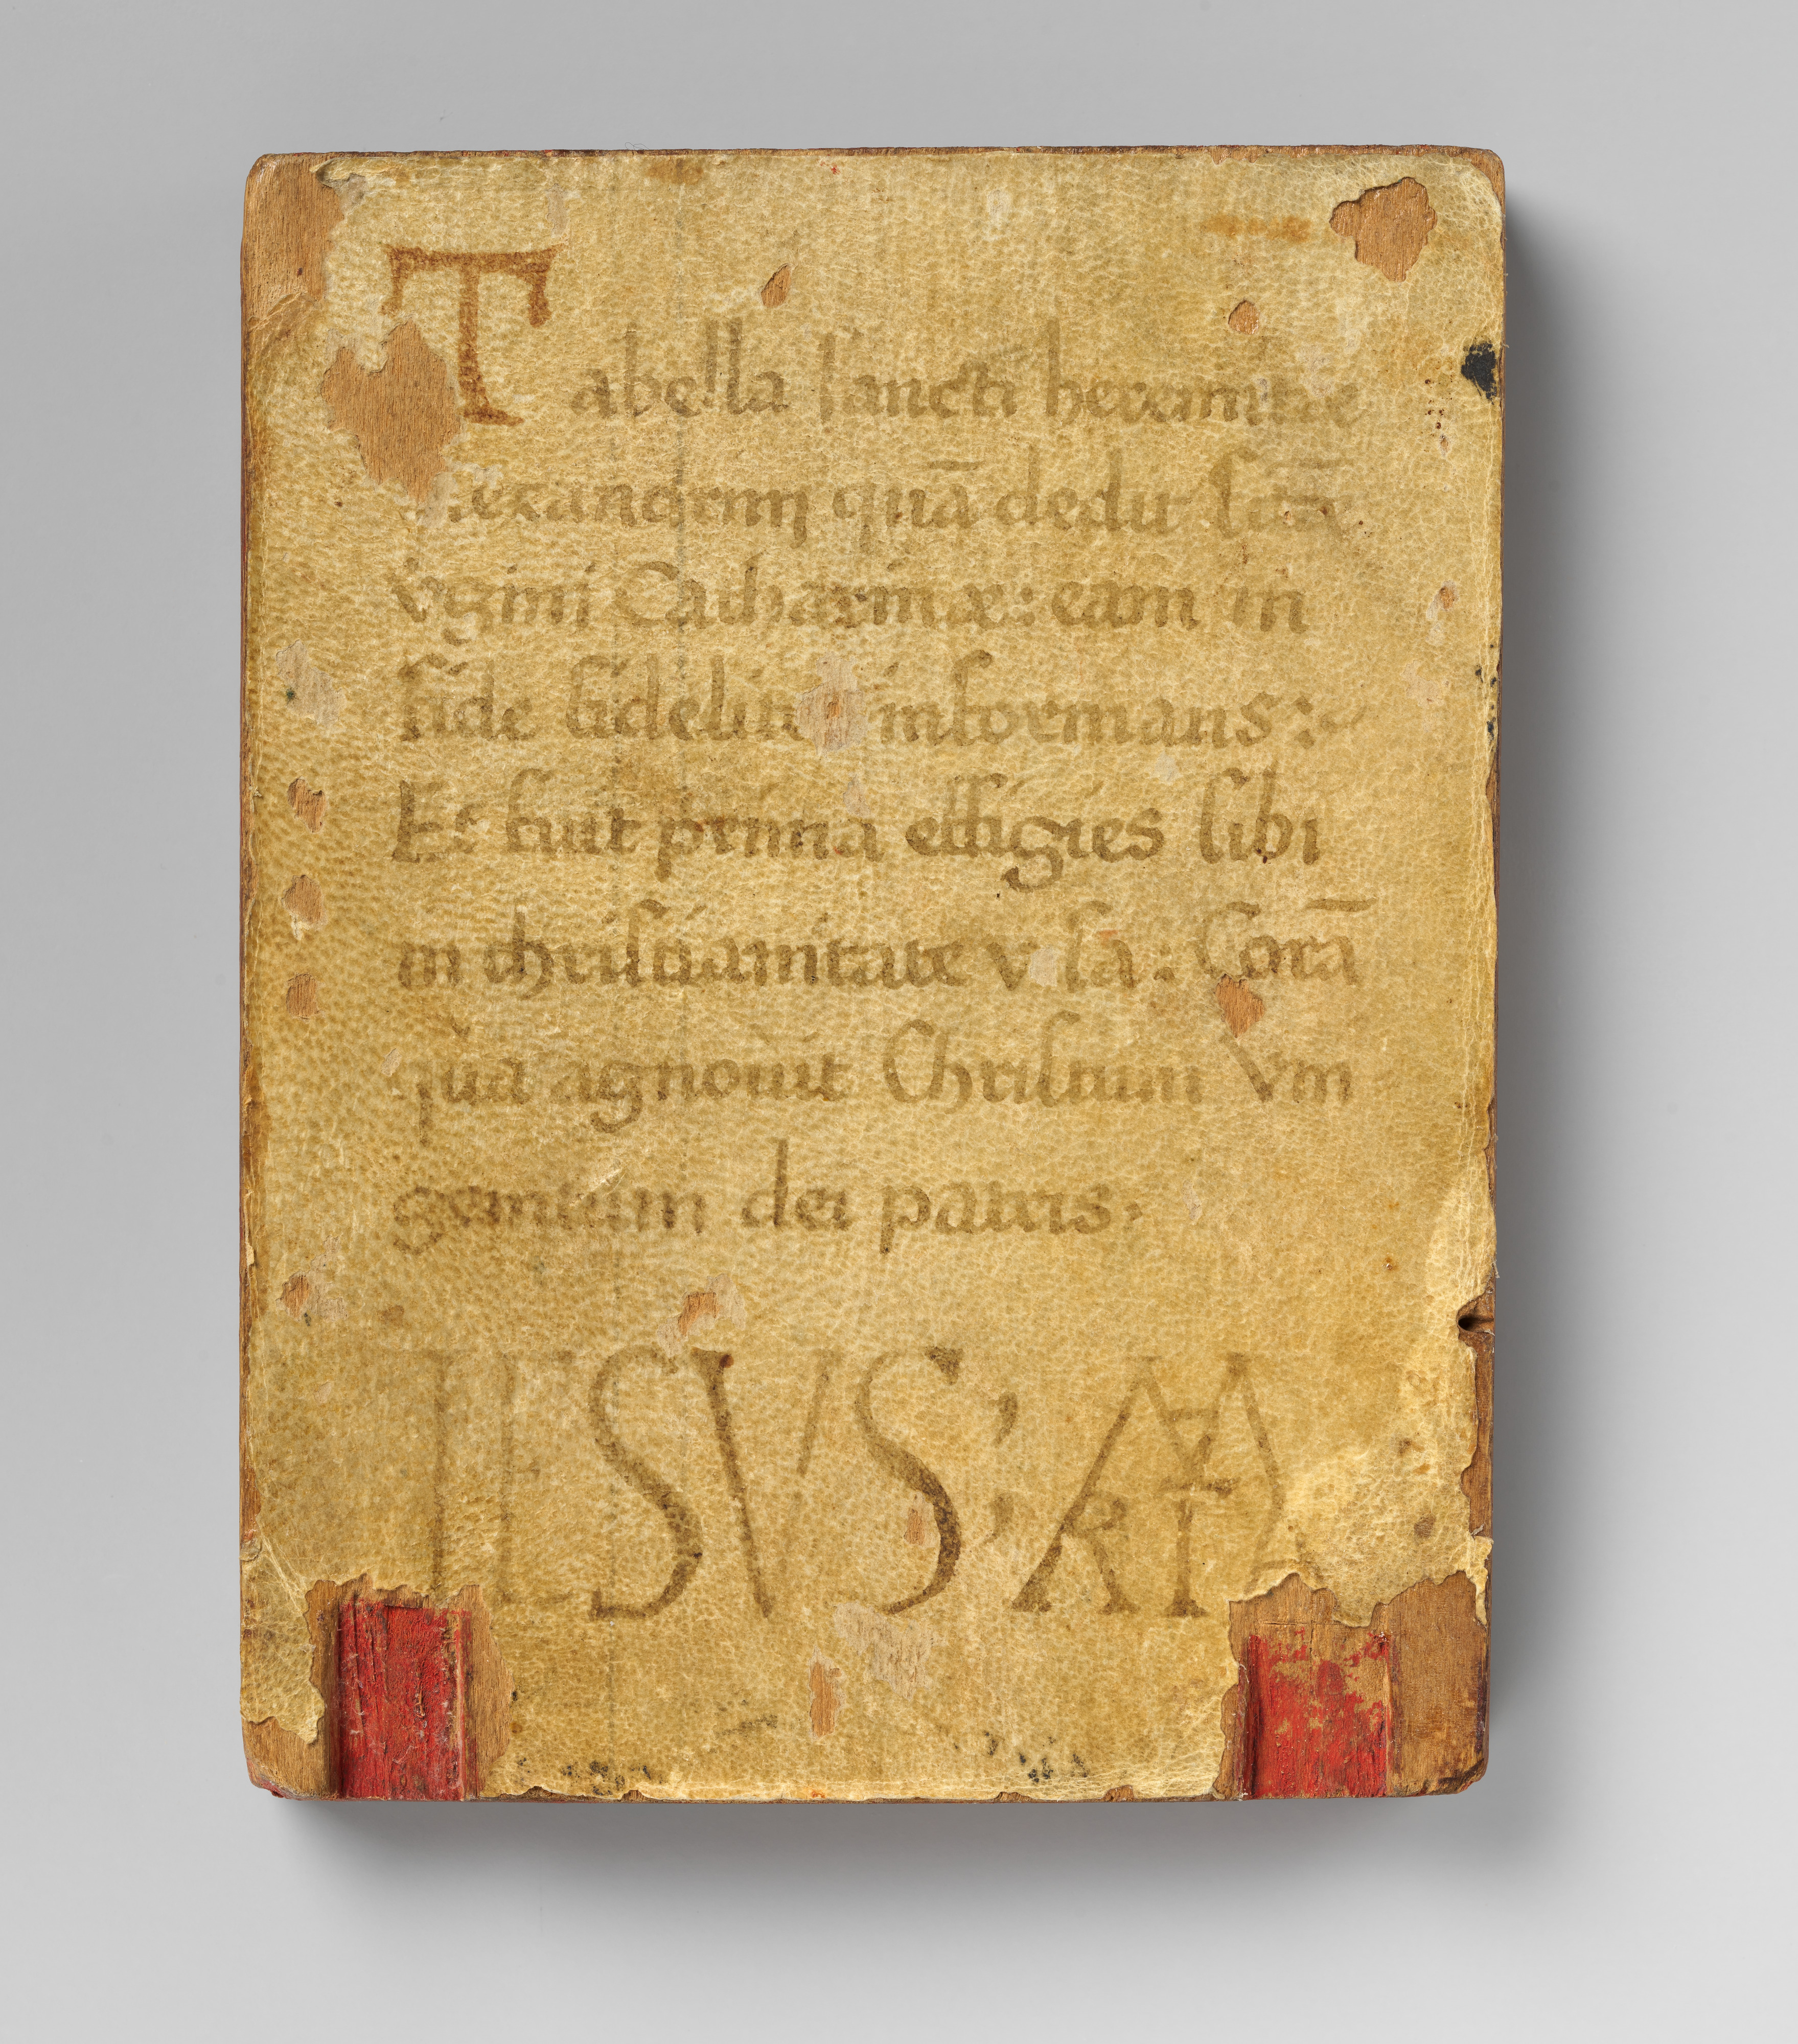 Tabella sancti heremitae
lexandrini quā dedit sctā
v̇gini Catharinæ: eam in
fide fidelit informans:
Et fuit prima effigies sibi
in christianitate visa: Corā
qua agnovit Christum Vni
genitum dei patris.
IESVS; MARIA